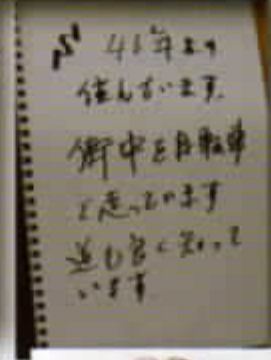 41年まり
住んでいます
街中を自転車
で走っています
道も良く知って
います